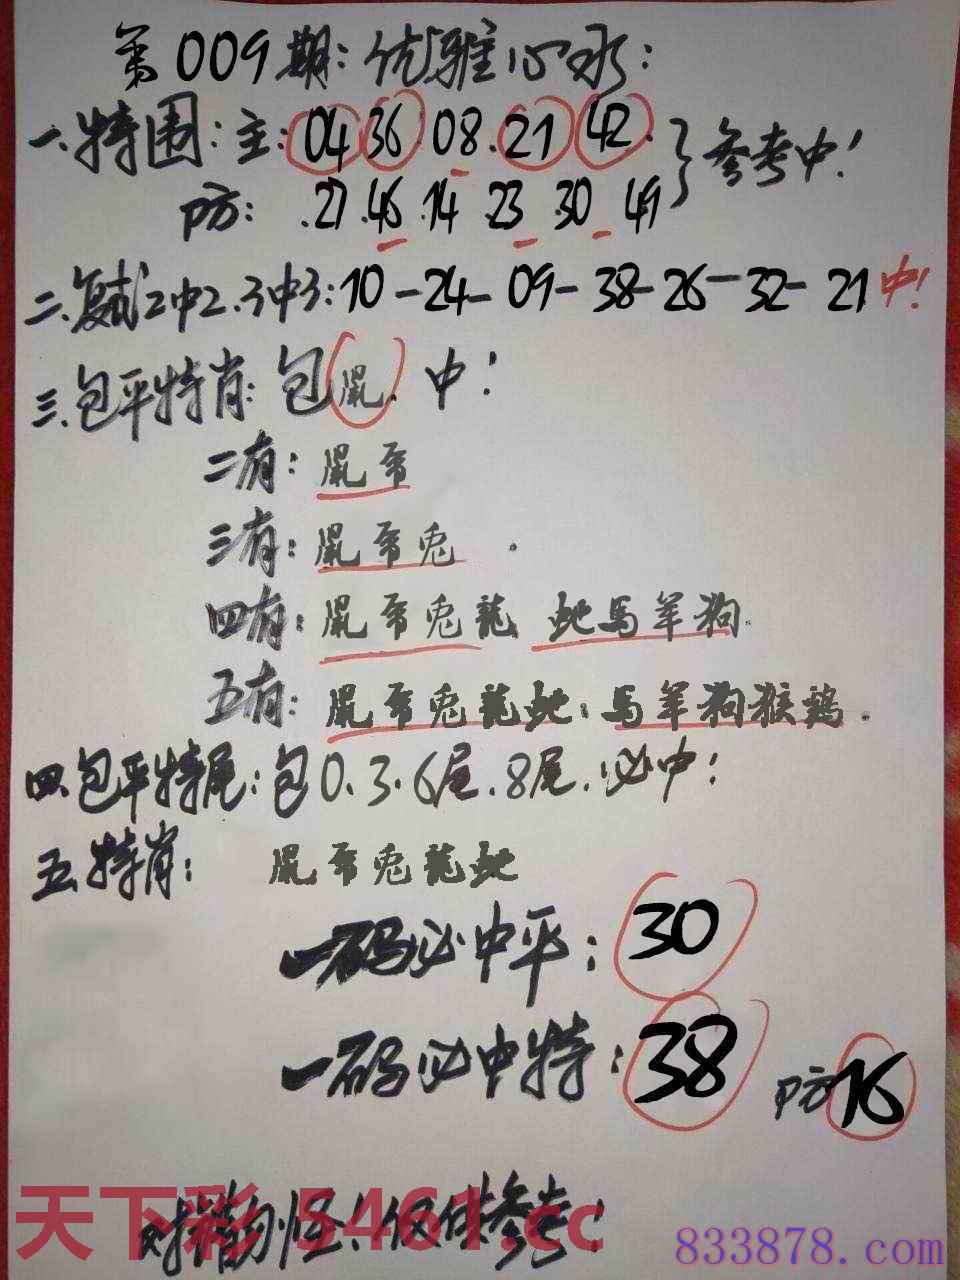 第009期:优雅心水:
一.特围:主:04 36 08.21 42.}参考中!
防: .27.46.14 .23 .30 .49
二.复式2中2.3中3:10-24-09-38-26-32-21中!
三.包平特肖:包鼠.中!
二有:鼠
三有:鼠 兔.
四有:鼠 兔龍 蛇馬羊狗.
五有:鼠 兔龍蛇:馬羊狗猴鷄.
四.包平特尾:包0.3.6尾.8尾.必中!
五.特肖: 鼠 兔龍蛇
一码必中平:30
一码必中特:38 防16
天下彩 5461.cc
仅供参考!
833878.com